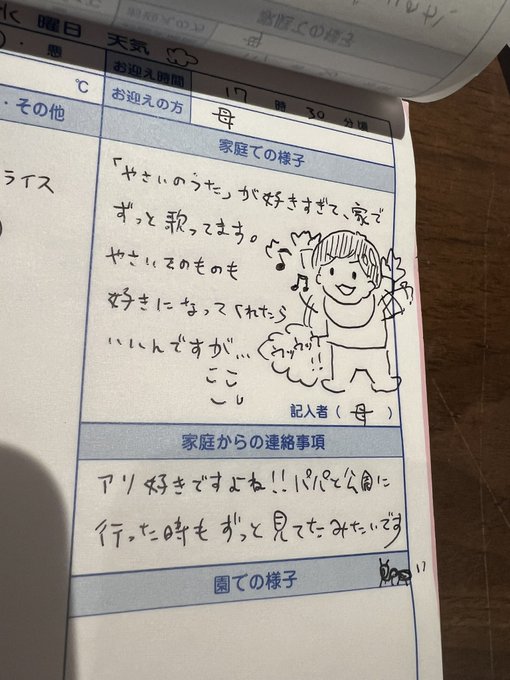 水 曜日 天気
・ 悪
℃
お迎え時間 17 時 30 分頃
お迎えの方 母
・その他
ライス
家庭での様子
「やさいのうた」が好きすぎて、家で
ずっと歌ってます。
やさいそのものも
好きになってくれたら
いいんですが…
ウッウッ!!
記入者( 母 )
家庭からの連絡事項
アリ好きですよね!!パパと公園に
行った時もずっと見てたみたいです
園での様子